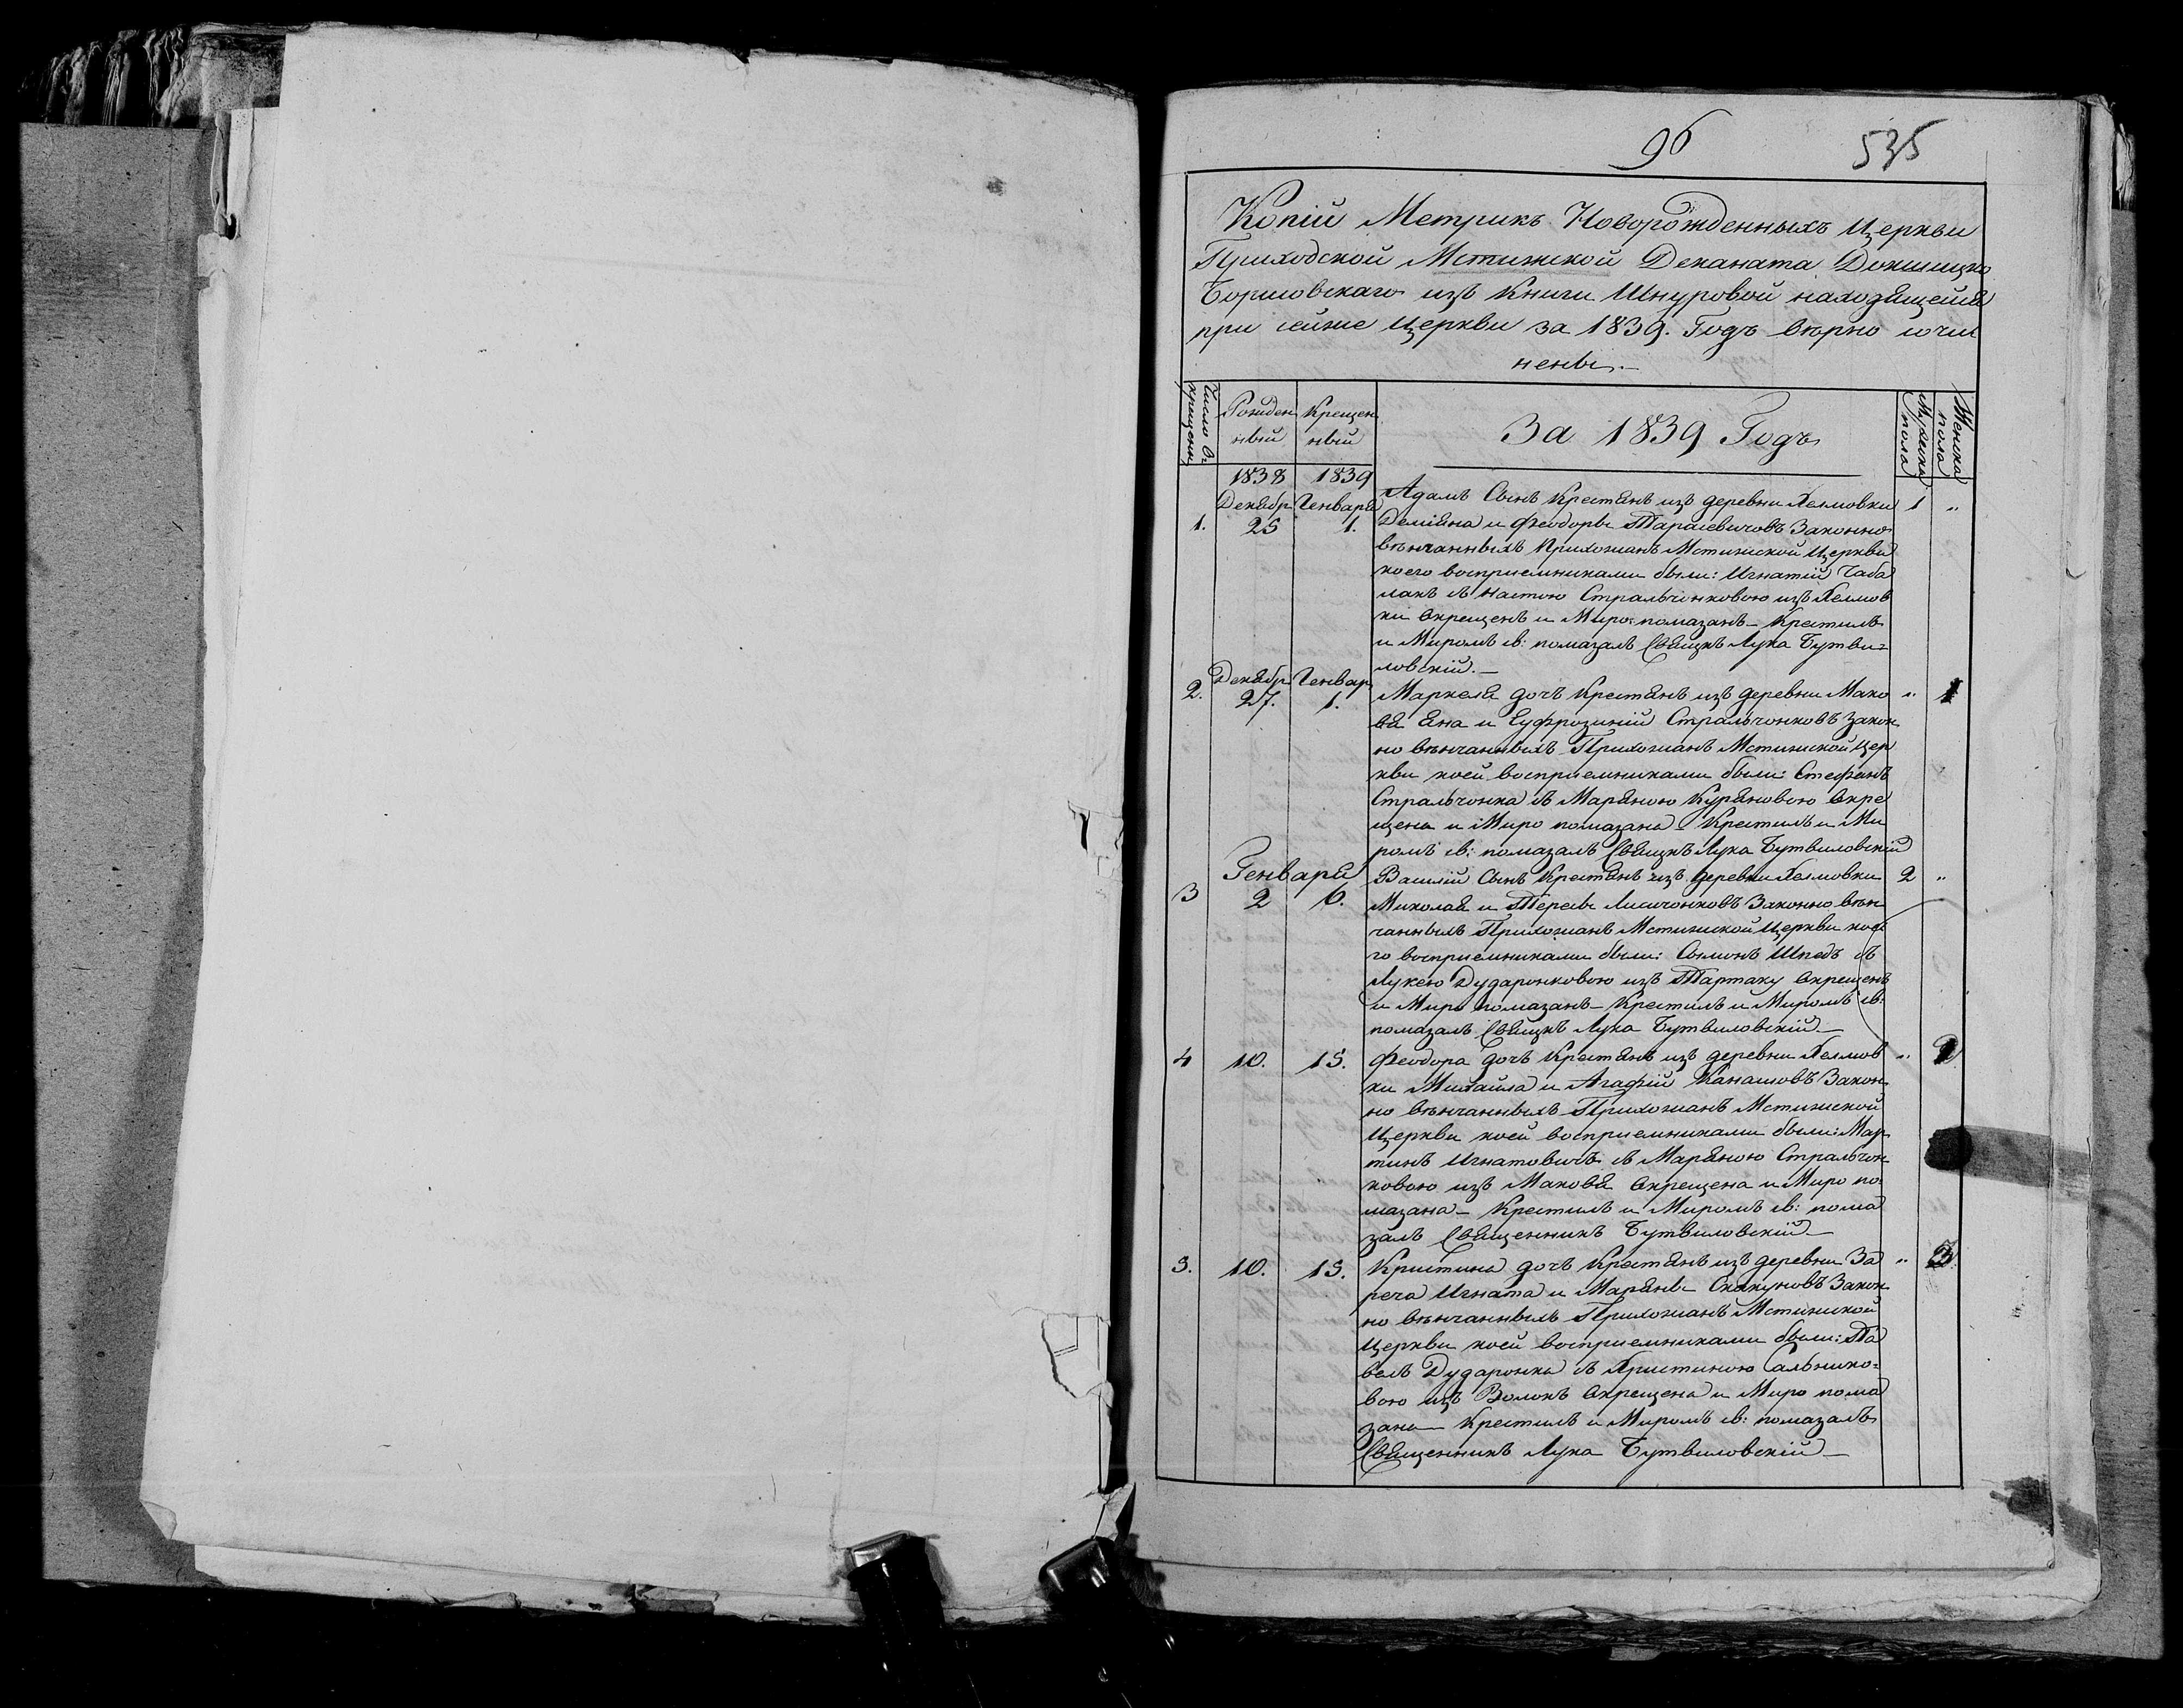 96 535
Копiи Метрикъ Новорожденныхъ Церкви
Приходской Мстижской Деканата Докшицко
Борисовскаго изъ Книги Шнуровой находящейся
при сейже Церкви за 1839. Годъ вѣрно сочи
нены.
Число О
крещенн
Рожден
ный
Крещен
ный
За 1839 Годъ
Мужска
пола
Женска
пола
1838 1839
Декабр Генваря
1. 25 1.
Адамъ Сынъ Крестянъ изъ деревни Хелмовки 1 "
Демiяна и Феодоры Тарасевичовъ Законно
вѣнчанныхъ Прихожанъ Мстижской Церкви
коего восприемниками были: Игнатiй Чаба
съ Настою Стральчонковою изъ Хелмов
ки Окрещенъ и Миро помазанъ Крестилъ
и Миромъ св: помазалъ Свящнъ Лука Бутви=
ловскiй.
Декабр Генвар
2. 27. 1.
Маркеля дочъ Крестянъ изъ деревни Мако " 1
вя Яна и Еуфрозинiй Стральчонковъ Закон
но вѣнчанныхъ Прихожанъ Мстижской Цер
кви коей восприемниками были: Стефанъ
Стральчонка съ Маряною Куряновою Окре
щена и Миро помазана Крестилъ и Ми
ромъ св: помазалъ Свящнъ Лука Бутвиловскiй
Генваря
3 2 6.
Василiй Сынъ Крестянъ изъ деревни Хелмовки 2 "
Миколая и Тересы Лисичонковъ Законно вѣн
чанныхъ Прихожанъ Мстижской Церкви кое
го восприемниками были: Сымонъ Шпедъ съ
Лукею Дударонковою изъ Тартаку Окрещенъ
и Миро помазанъ Крестилъ и Миромъ св:
помазалъ Свящнъ Лука Бутвиловскiй
4 10. 15.
Феодора дочъ Крестянъ изъ деревни Хелмов " 2
ки Михаила и Агафiй Канашовъ Закон
но вѣнчанныхъ Прихожанъ Мстижской
Церкви коей восприемниками были: Мар
тинъ Игнатовичъ съ Маряною Стральчон
ковою изъ Маковя Окрещена и Миро по
мазана Крестилъ и Миромъ св: пома
залъ Священникъ Бутвиловскiй
5. 10. 15.
Кристина дочъ Крестянъ изъ деревни За " 3
реча Игната и Маряны Скакуновъ Закон
но вѣнчанныхъ Прихожанъ Мстижской
Церкви коей восприемниками были: Па
велъ Дударонка съ Христиною Сальнико=
вою изъ Волокъ Окрещена и Миро пома
зана Крестилъ и Миромъ св: помазалъ
Священникъ Лука Бутвиловскiй